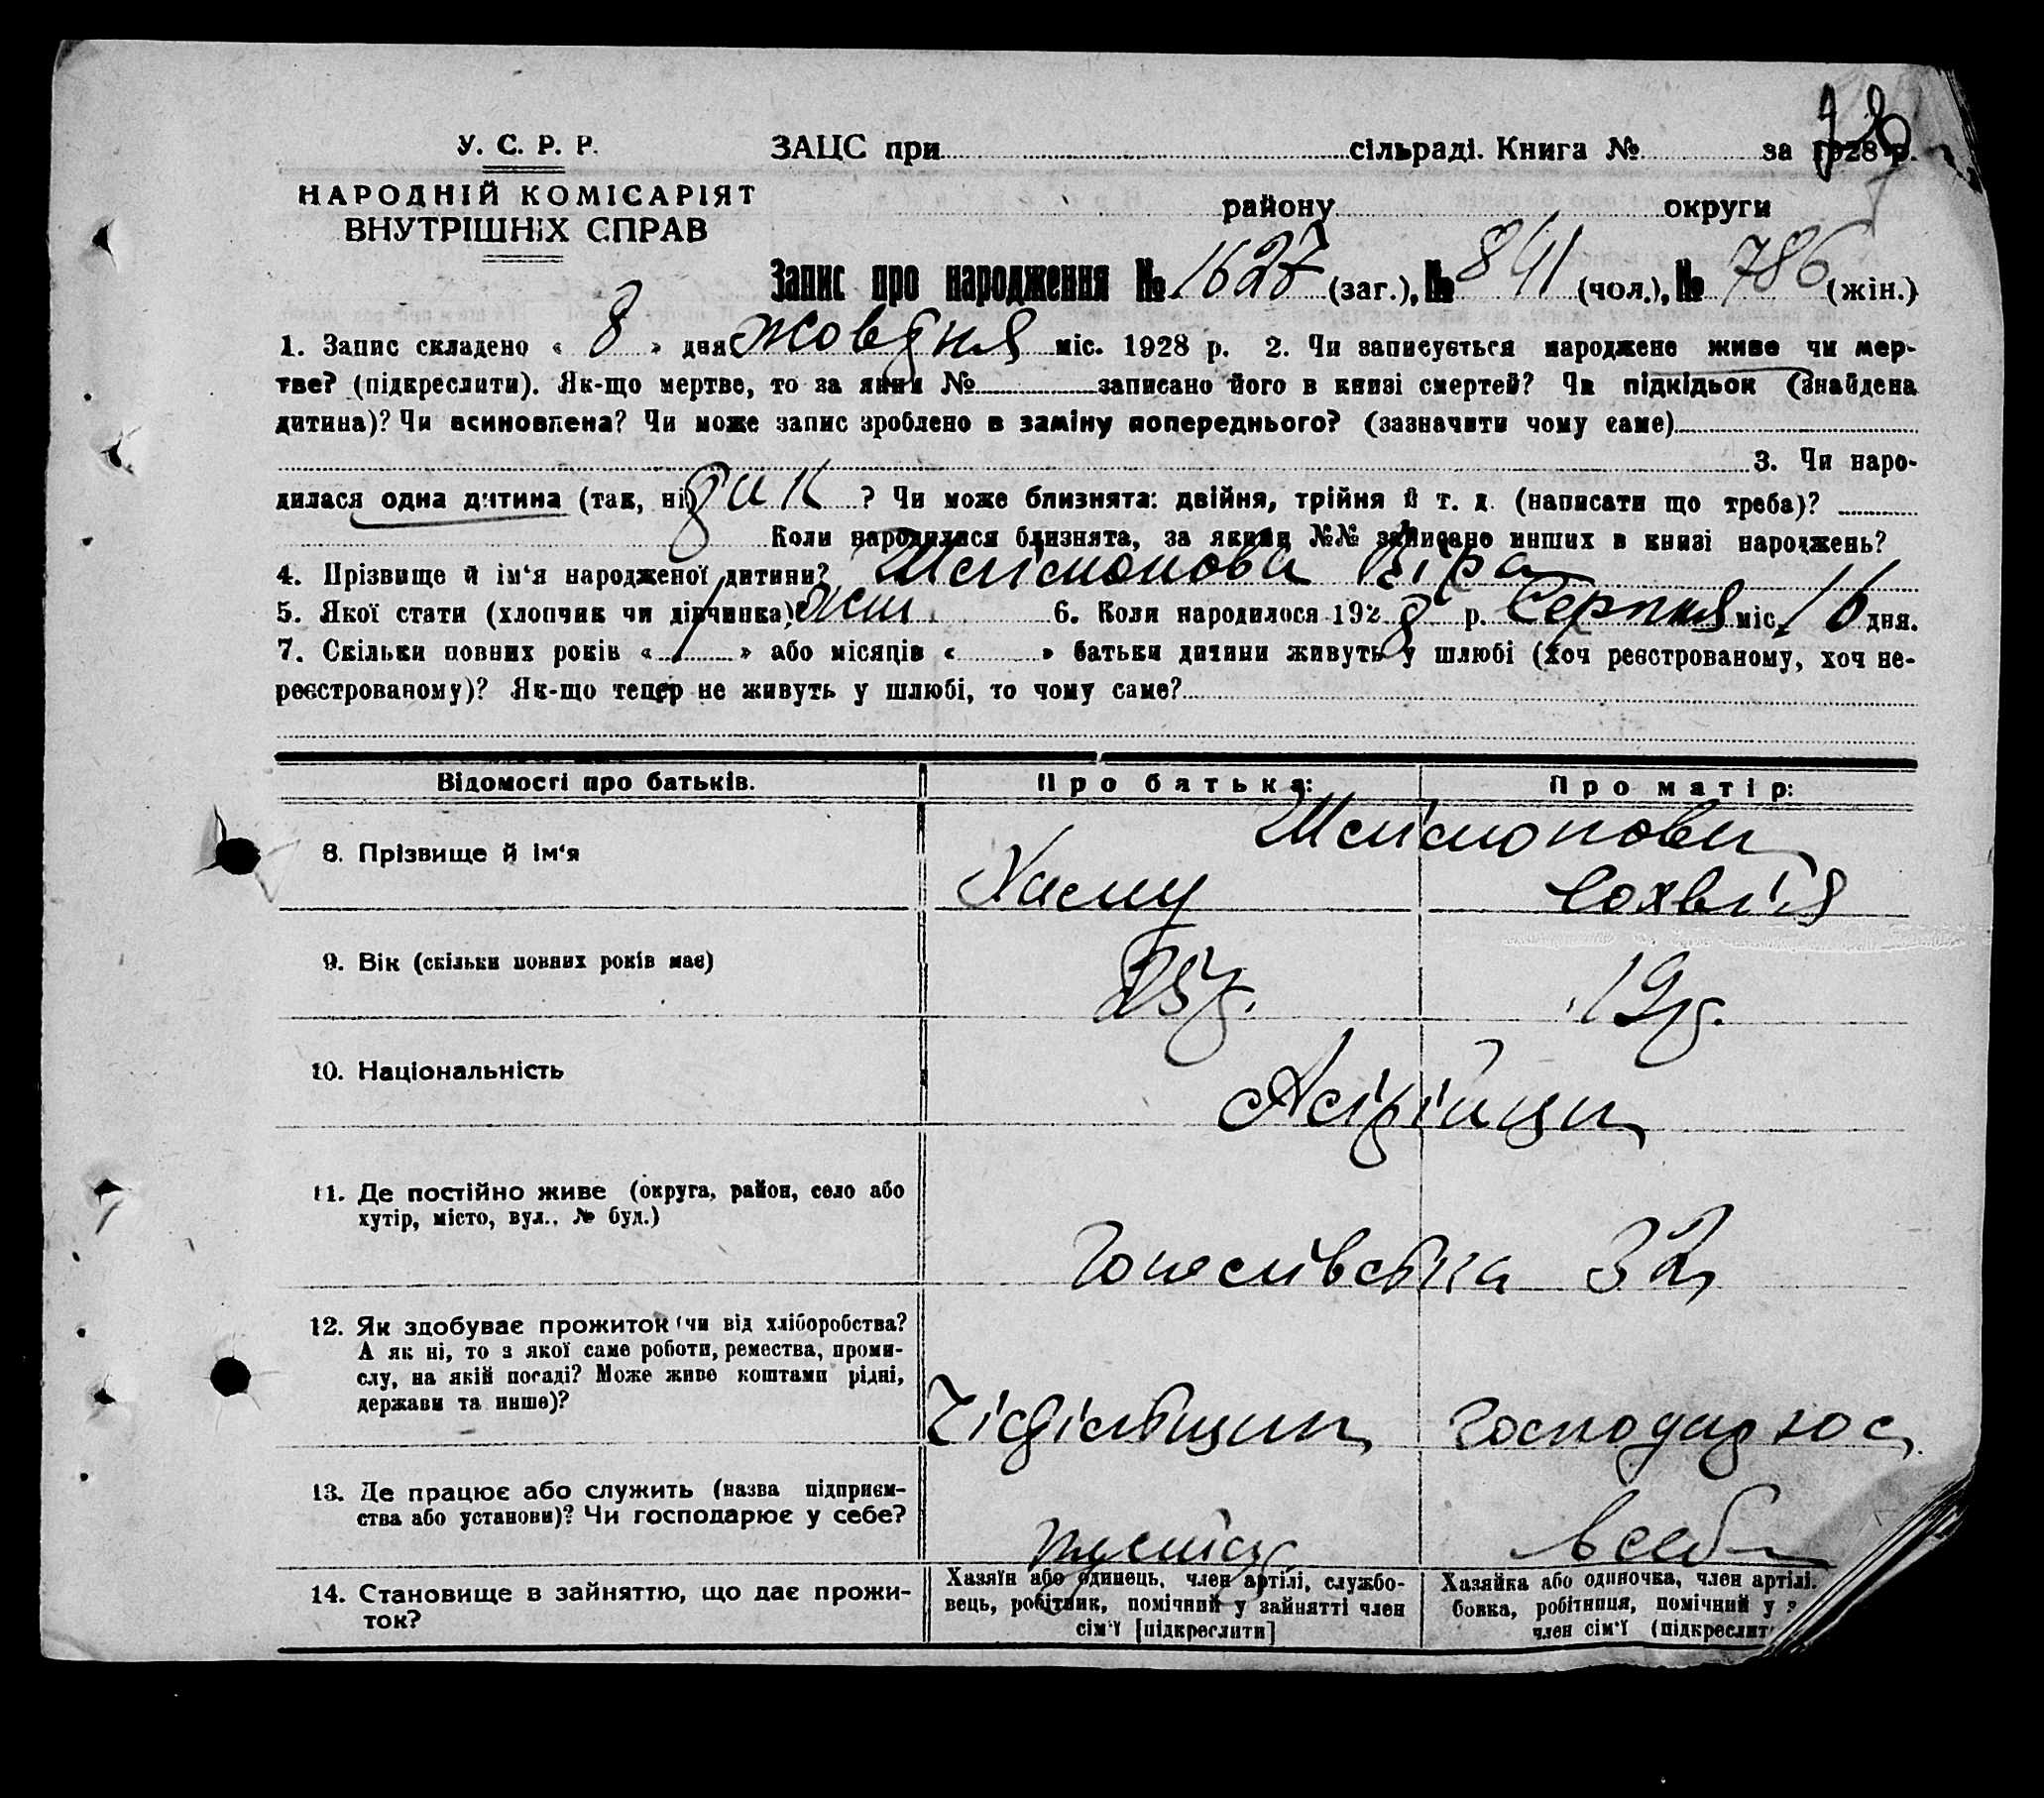 У. С. Р. Р.
НАРОДНІЙ КОМІСАРІЯТ
ВНУТРІШНІХ СПРАВ
ЗАЦС при сільраді. Книга № за 1928 р.
району округи
Запис про народження № 1627 (заг.), № 841 (чол.), № 786 (жін.)
1. Запис складено « 8 » дня жовтня міс. 1928 р. 2. Чи записується народжене живе чи мер-
тве? (підкреслити). Як-що мертве, то за яким № записано його в книзі смертей? Чи підкідьок (знайдена
дитина)? Чи всиновлена? Чи може запис зроблено в заміну попереднього? (зазначити чому саме)
3. Чи наро-
дилася одна дитина (так, ні) так ? Чи може близнята: двійня, трійня й т. д. (написати що треба)?
Коли народилися близнята, за якими №№ записано инших в книзі народжень?
4. Прізвище й ім‘я народженої дитини? Шлімонова Віра
5. Якої стати (хлопчик чи дівчинка)? жін. 6. Коли народилося 1928 р. Серпня міс. 16 дня.
7. Скільки повних років « 1 » або місяців « » батьки дитини живуть у шлюбі (хоч реєстрованому, хоч не-
реєстрованому)? Як-що тепер не живуть у шлюбі, то чому саме?
Відомості про батьків. Про батька: Про матір:
Шлімонови
8. Прізвище й ім‘я Хаєму Сохвія
9. Вік (скільки повних років має) 25 р. 19 р.
10. Національність Асірійци
11. Де постійно живе (округа, район, село або
хутір, місто, вул., № буд.)
32
12. Як здобуває прожиток (чи від хліборобства?
А як ні, то з якої саме роботи, ремества, проми-
слу, на якій посаді? Може живе коштами рідні,
держави та инше)?
Чістільщик Господарює
13. Де працює або служить (назва підприєм-
ства або установи)? Чи господарює у себе?
в себе
14. Становище в зайняттю, що дає прожи-
ток?
Хазяїн або одинець, член артілі, службо-
вець, робітник, помічний у зайнятті член
сім‘ї [підкреслити]
Хазяйка або одиночка, член артілі,
бовка, робітниця, помічний у
член сім‘ї (підкреслит